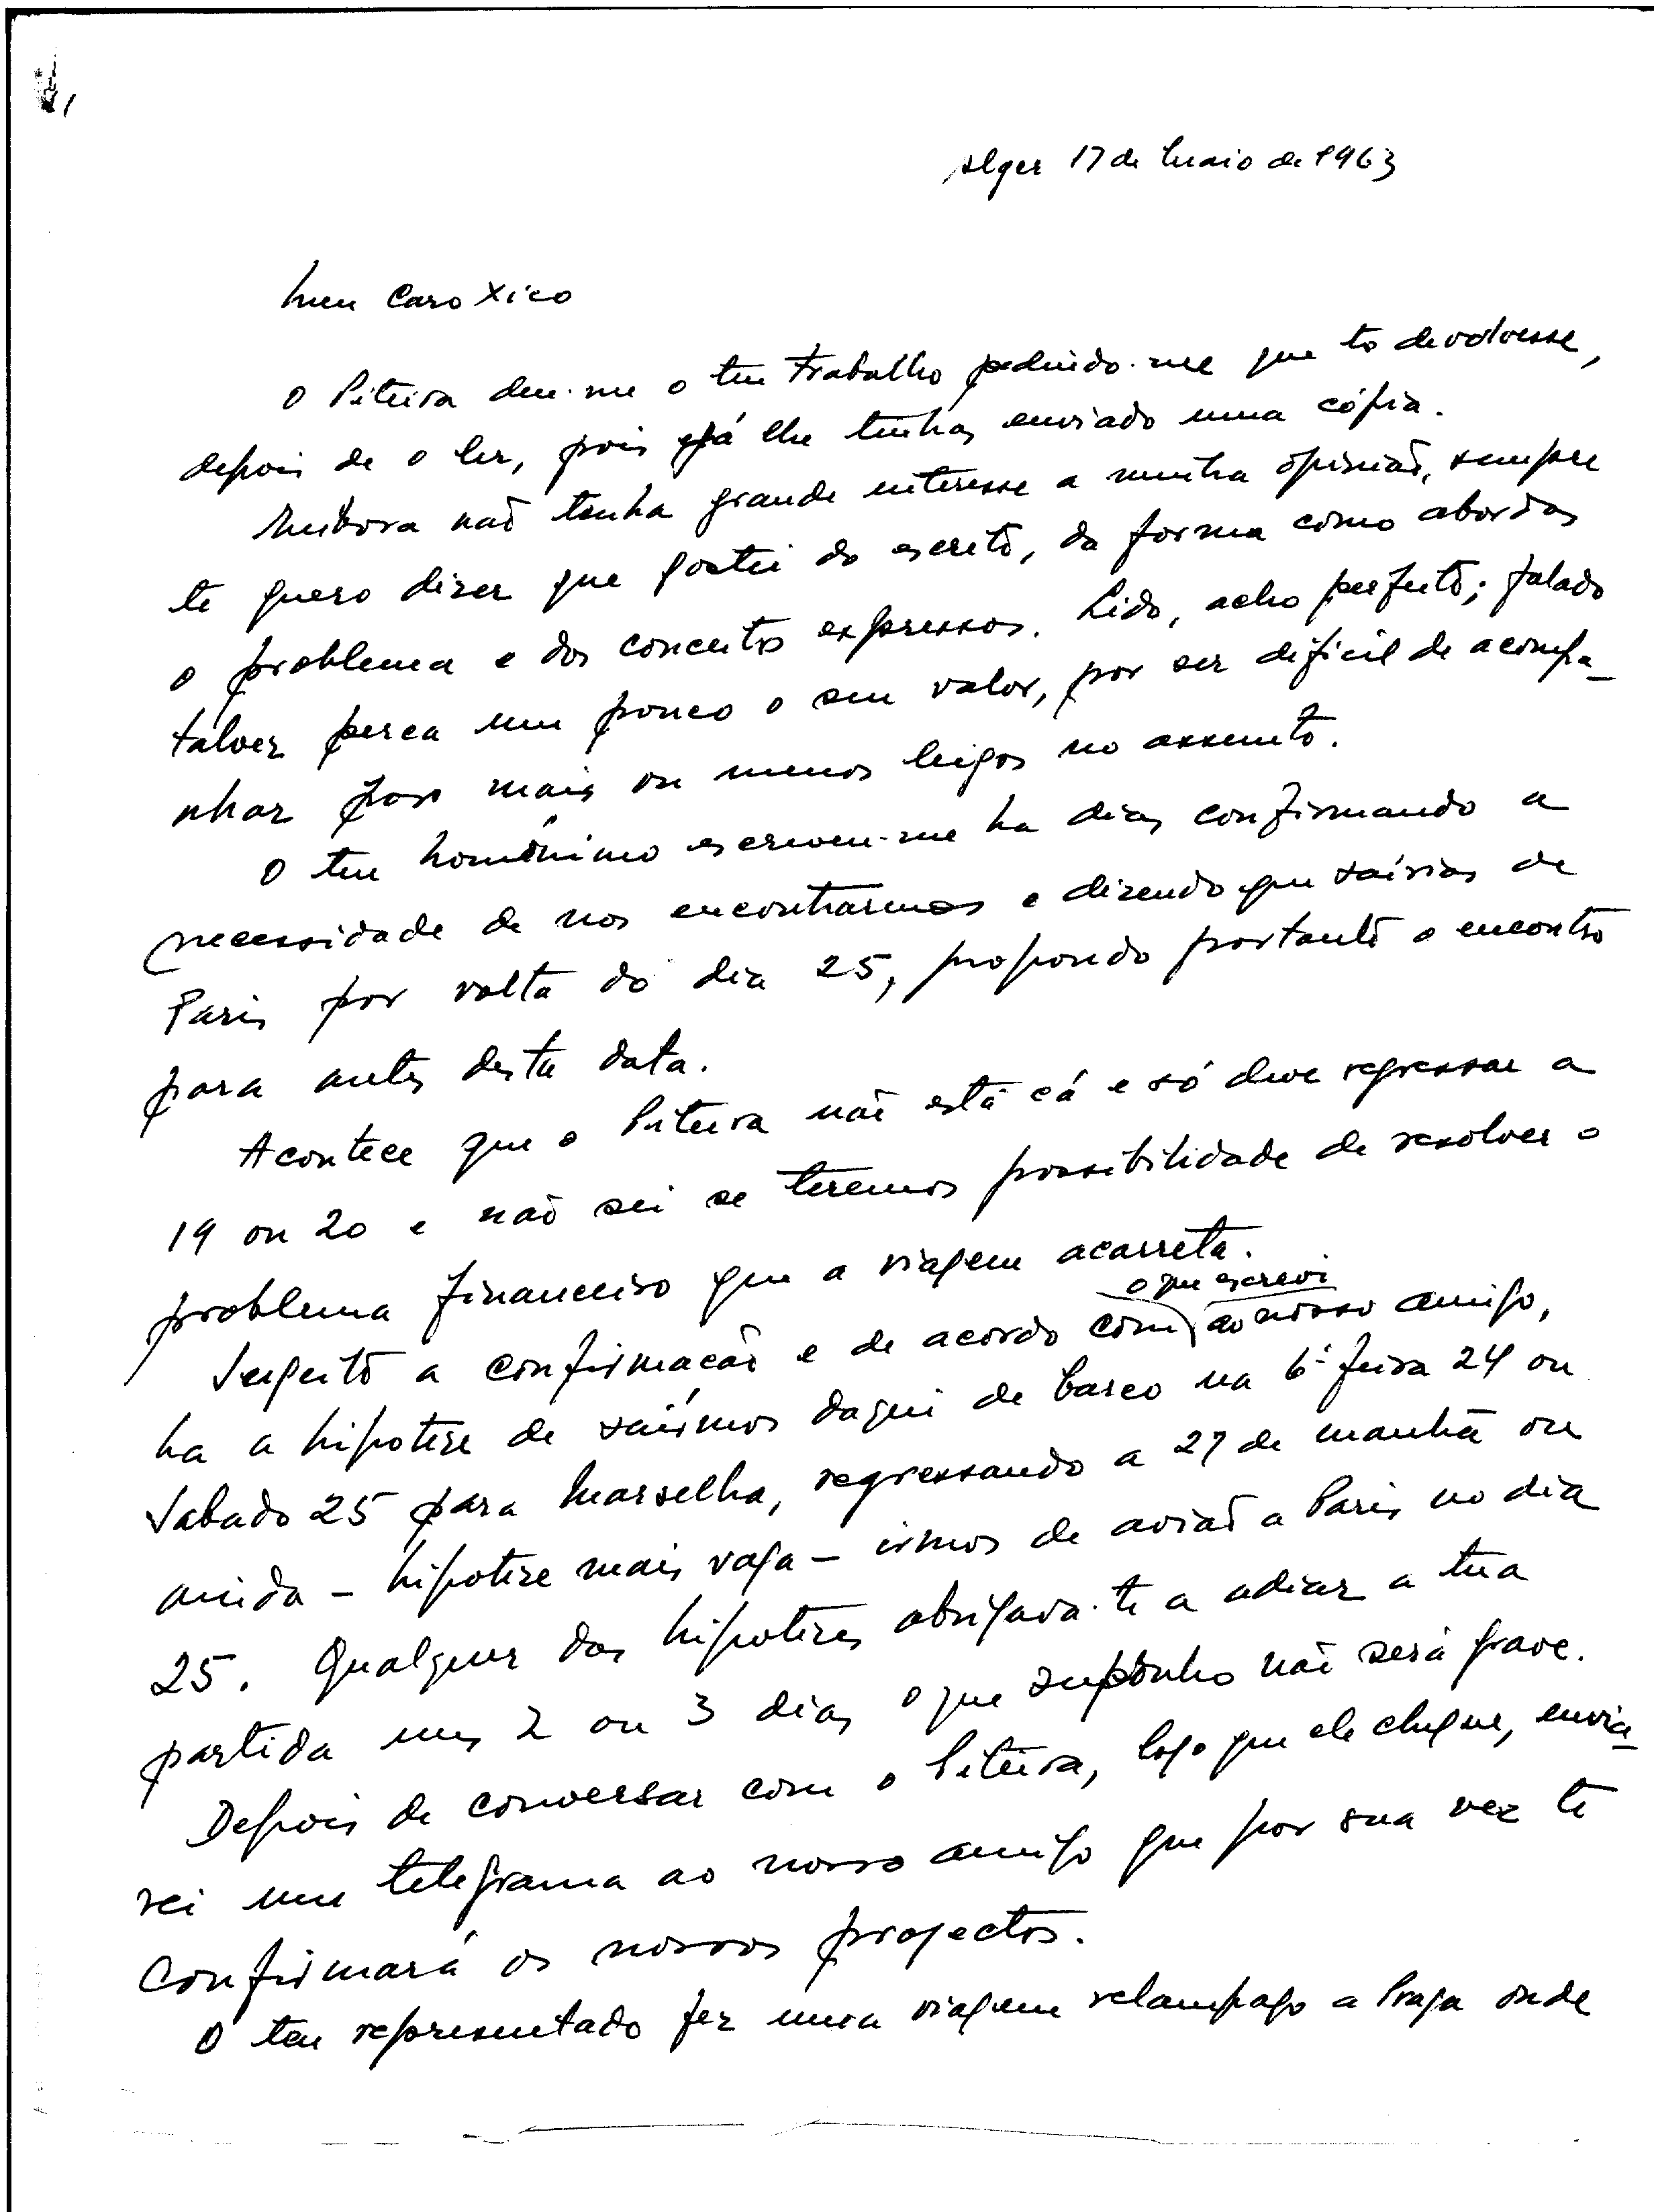 Alger 17 de Maio de 1963
Meu Caro Xico
O Piteira deu-me o teu trabalho pedindo-me que to devolvesse,
depois de o ler, pois já lhe tinhas enviado uma cópia.
Embora não tenha grande interesse a minha opinião, sempre
te quero dizer que gostei do escrito, da forma como abordas
o problema e dos conceitos expressos. Lido, acho perfeito; falado
talvez perca um pouco o seu valor, por ser dificil de acompa-
nhar por mais ou menos leigos no assunto.
O teu homónimo escreveu-me ha dias confirmando a
necessidade de nos encontrarmos e dizendo que saírias de
Paris por volta do dia 25, propondo portanto o encontro
para antes desta data.
Acontece que o Piteira não está cá e só deve regressar a
19 ou 20 e não sei se teremos possibilidade de resolver o
problema financeiro que a viagem acarreta.
o que escrevi
Sugeito a confirmação e de acordo com ao nosso amigo,
ha a hipotese de saírmos daqui de barco na 6ª feira 24 ou
Sabado 25 para Marselha, regressando a 27 de manhã ou
ainda - hipotese mais vaga - irmos de avião a Paris no dia
25. Qualquer das hipoteses obrigava-te a adiar a tua
partida uns 2 ou 3 dias o que suponho não será grave.
Depois de conversar com o Piteira, logo que ele chegue, envia-
rei um telegrama ao nosso amigo que por sua vez te
confirmará os nossos projectos.
O teu representado fez uma viagem relampago a Praga onde